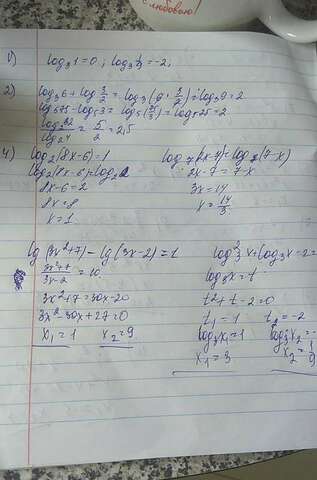 с любовью!
1) log₃1=0 ; log₃ = -2,
2) log₃6+log 3/2 = log₃(6·3/2) = log₃9=2
log₅75-log₅3 = log₅(75/3) = log₅25=2
log₂32/log₂4 = 5/2 = 2,5
4) log₂(8x-6)=1
log₂(8x-6)=log₂2
8x-6=2
8x=8
x=1
log₇(2x-7)=log₇(7-x)
2x-7=7-x
3x=14
x=14/3
lg(3x²+7)-lg(3x-2)=1
3x²+7/3x-2=10
3x²+7=30x-20
3x²-30x+27=0
x₁=1 x₂=9
log²₃x+log₃x-2=
log₃x=t
t²+t-2=0
t₁=1 t₂=-2
log₃x₁=1 log₃x₂=-
x₁=3 x₂=1/9